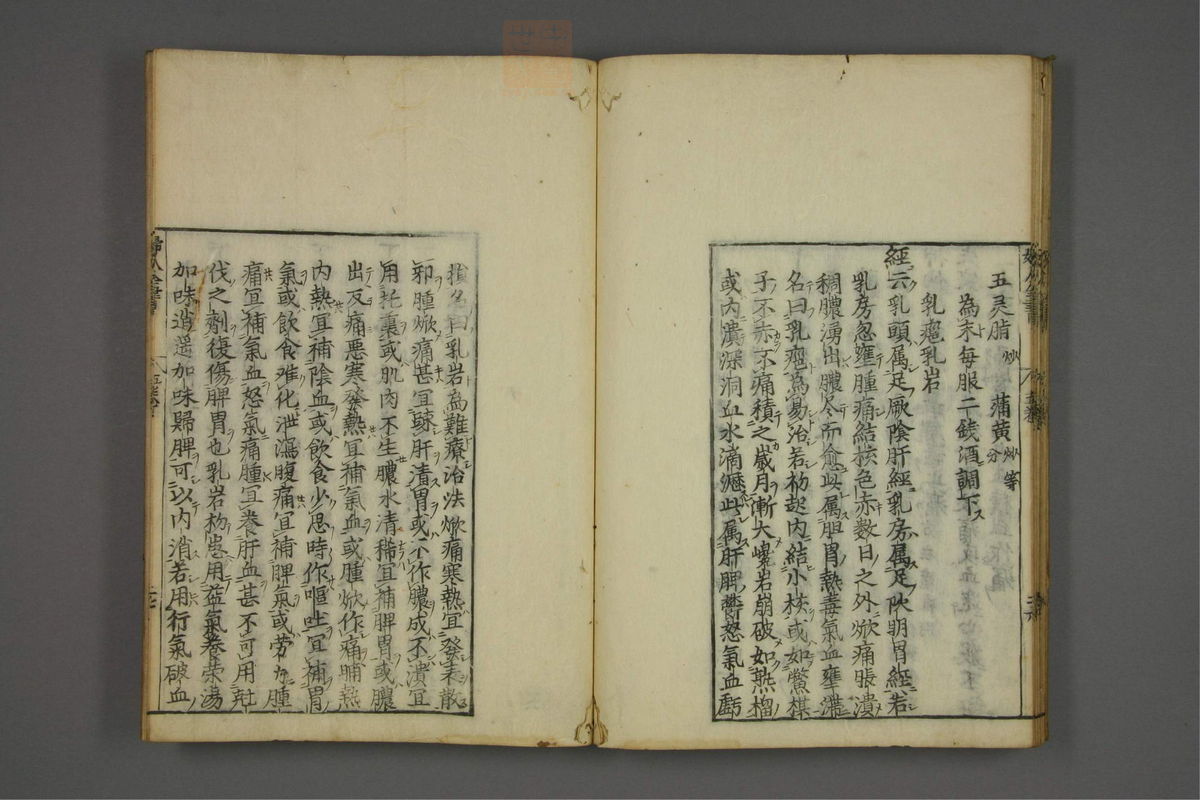 五灵脂炒 蒲黄炒等分
為末每服二銭酒調下ス
乳癰乳岩
經云乳頭属足厥陰肝經乳房属足陽明胃經若
乳房忽壅腫痛結核色赤数日之外焮痛脹潰
稠膿湧出膿尽而愈此属胆胃熱毒氣血壅滞
名曰乳癰為易治若初起内結小核或如鱉棋
子不赤不痛積之歳月漸大巉岩崩破如熟榴
或内潰深洞血水滴瀝此属肝脾欝怒氣血虧
損名曰乳岩為難療治法焮痛寒熱宜發表散
邪腫焮痛甚宜疎肝清胃或不作膿成不潰宜
用托裏或肌肉不生膿水清稀宜補脾胃或膿
出反痛悪寒發熱宜補氣血或腫焮作痛晡熱
内熱宜補陰血或飲食少思時作嘔吐宜補胃
氣或飲食难化泄瀉腹痛宜補脾氣或劳力腫
痛宜補氣血怒氣痛腫宜養肝血甚不可用尅
伐之劑復傷脾胃也乳岩初患用益氣養荣湯
加味逍遥加味歸脾可以内消若用行氣破血